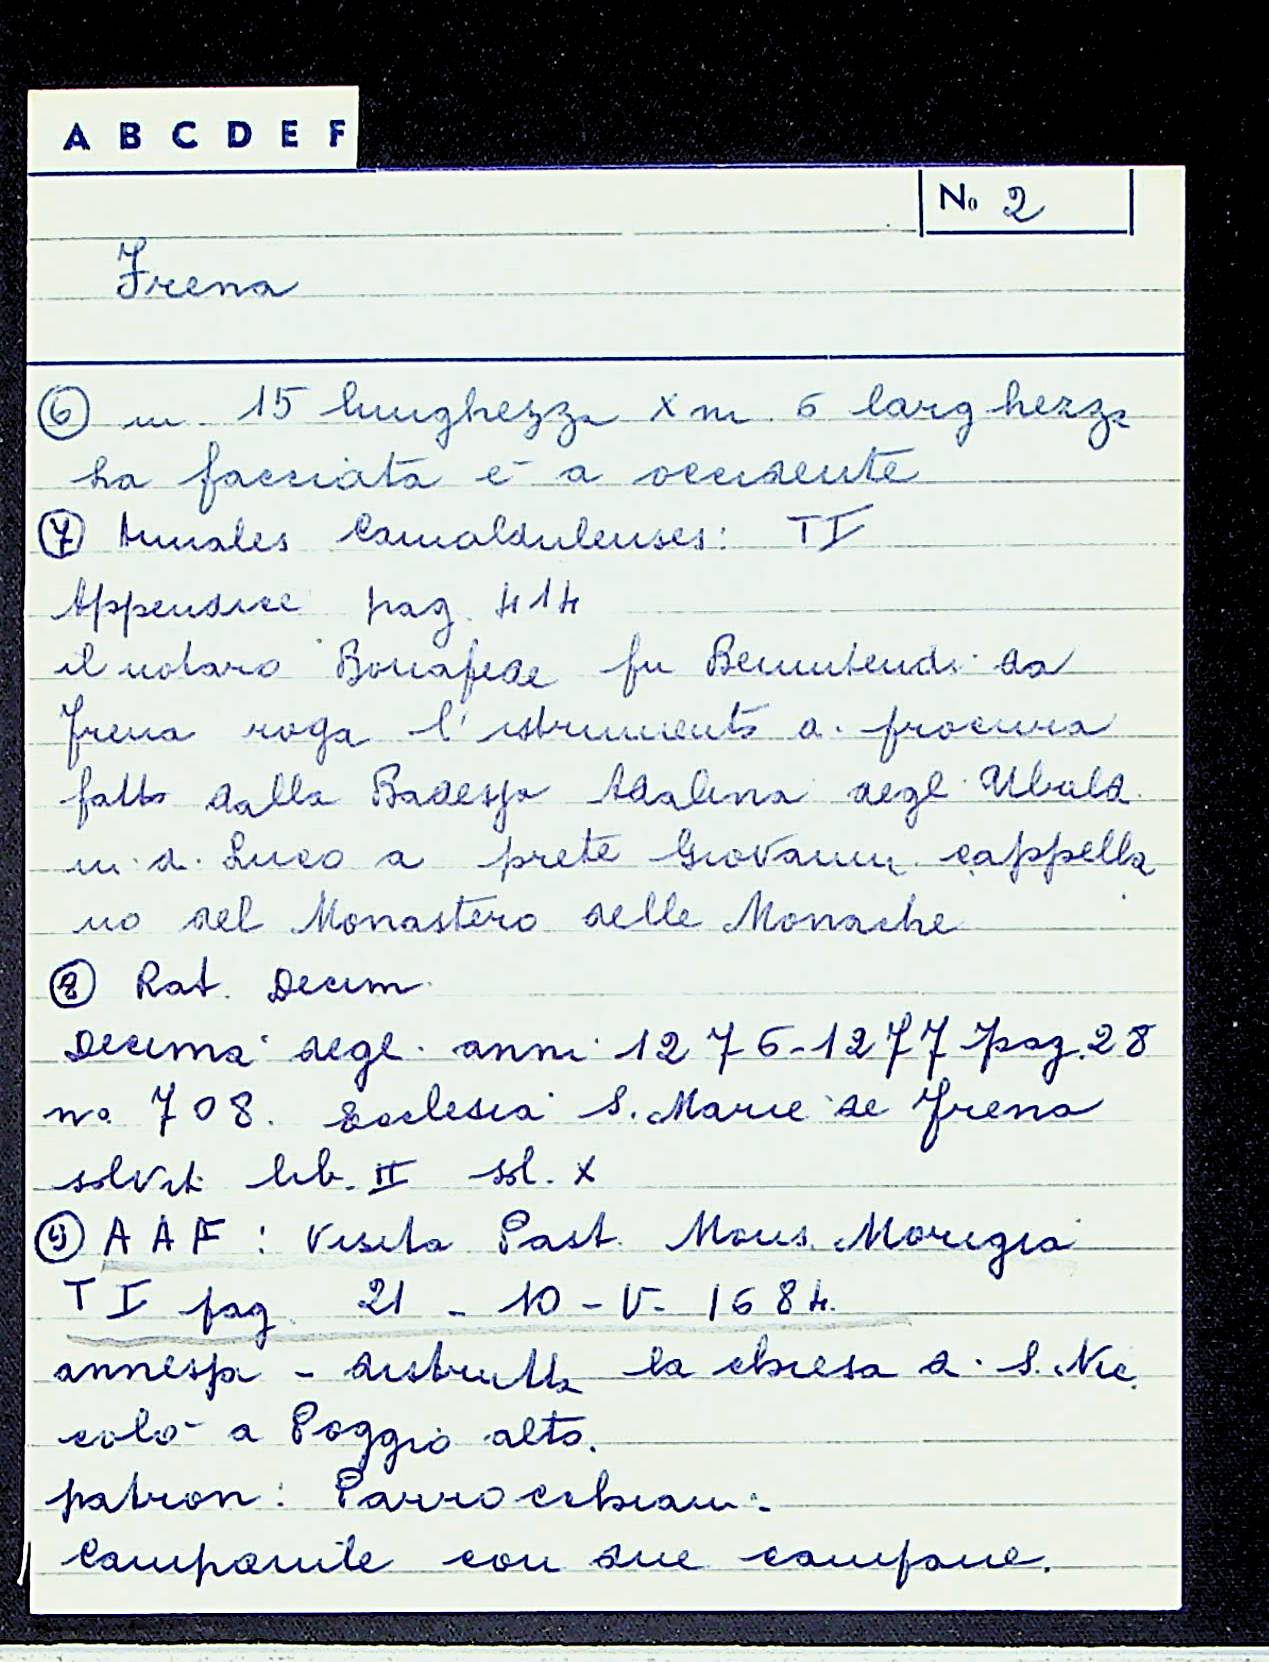 A B C D E F
No 2
Frena
⑥ m. 15 lunghezza x m. 6 larghezza
La facciata è a occidente
⑦ Annales Camaldulenses: T V
Appendice pag. 414
il notaro Bonafede fu Benintendi da
Frena roga l'istrumento di procura
fatto dalla Badessa Adalina degli Ubald
ini di Luco a prete Giovanni cappella
no del Monastero delle Monache
⑧ Rat. Decim.
Decima degli anni 1276-1277 pag. 28
no. 708. Ecclesia S. Marie de Frena
solvit lib. II sol. X
⑨ A A F: Visita Past. Mons. Morigia
T I pag. 21 - 10 - V - 1684.
annessa - distrutta la chiesa di S. Nic
colò a Poggio alto.
patroni: Parrocchiani.
Campanile con due campane.